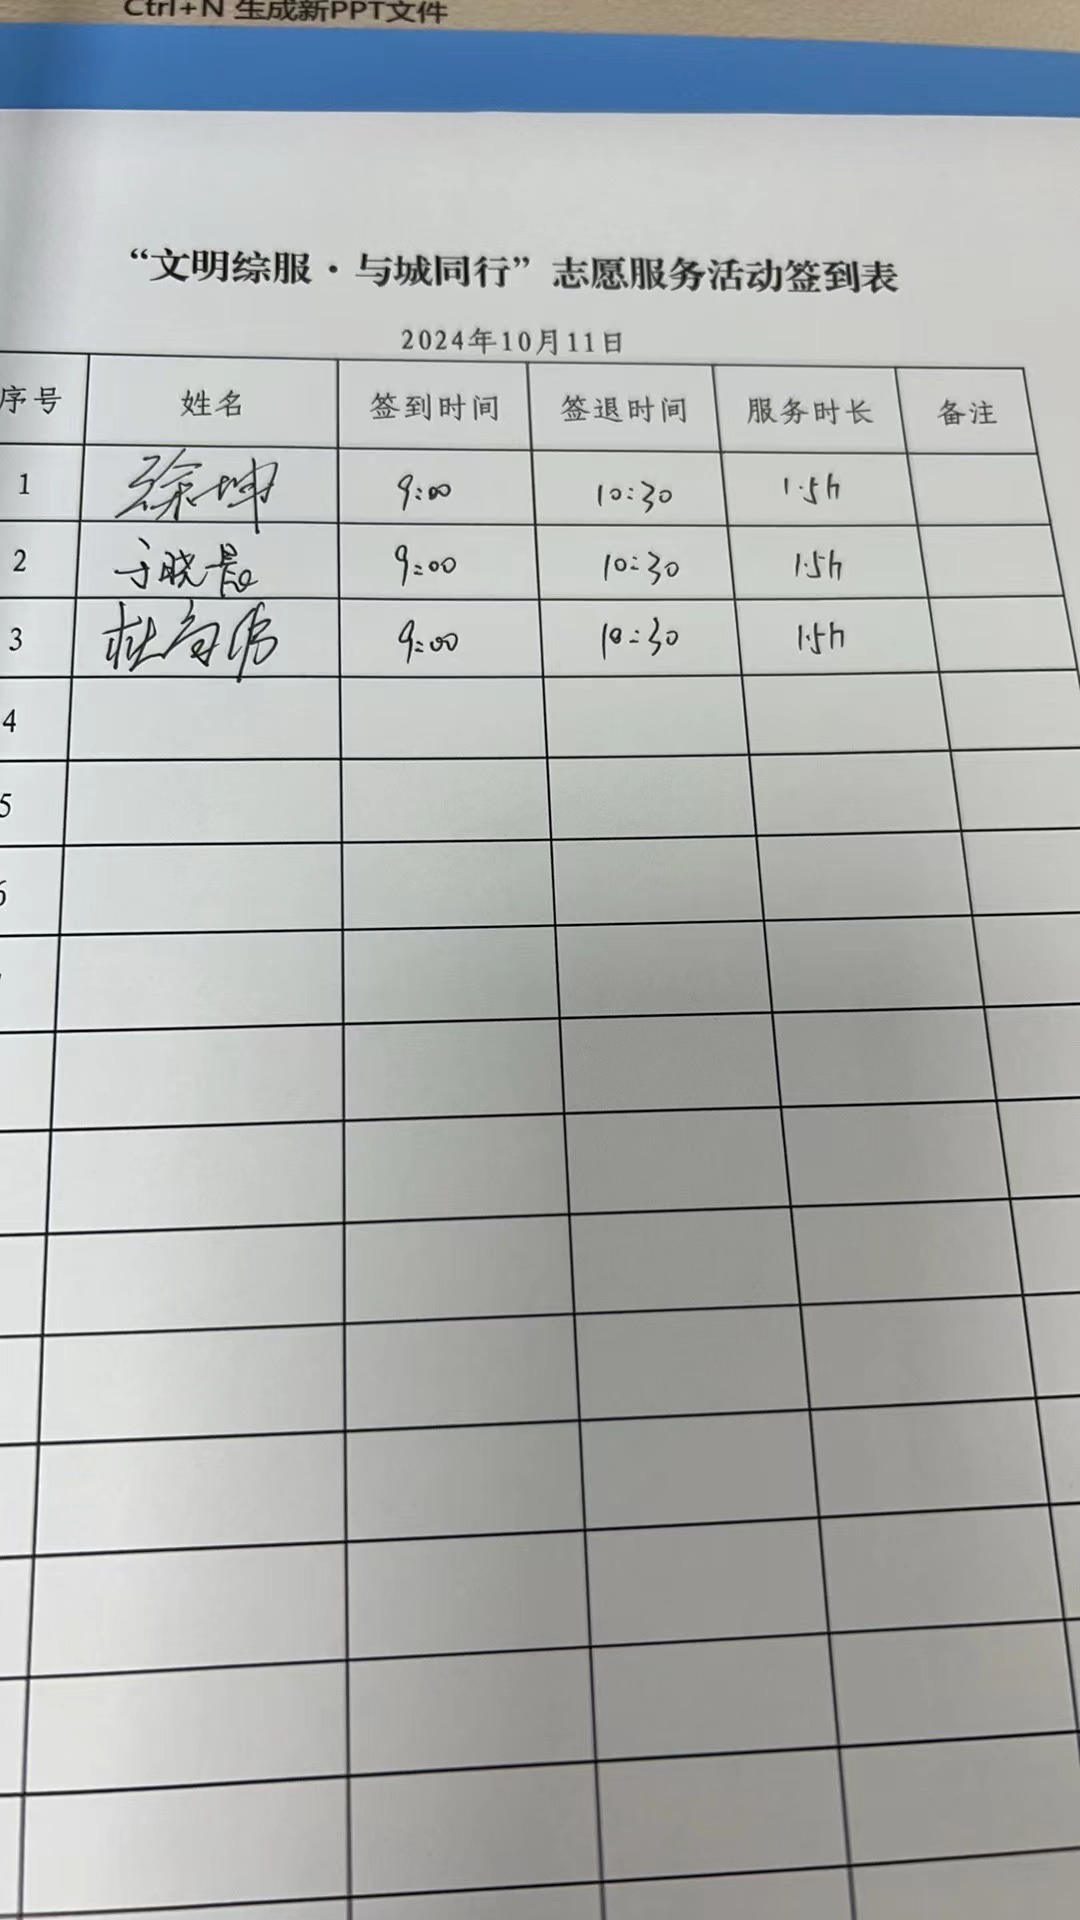 Ctrl+N 生成新PPT文件
“文明综服·与城同行”志愿服务活动签到表
2024年10月11日
序号 姓名 签到时间 签退时间 服务时长 备注
1 徐坤 9:00 10:30 1.5h
2 于晓晨 9:00 10:30 1.5h
3 杜 9:00 10:30 1.5h
4
5
6